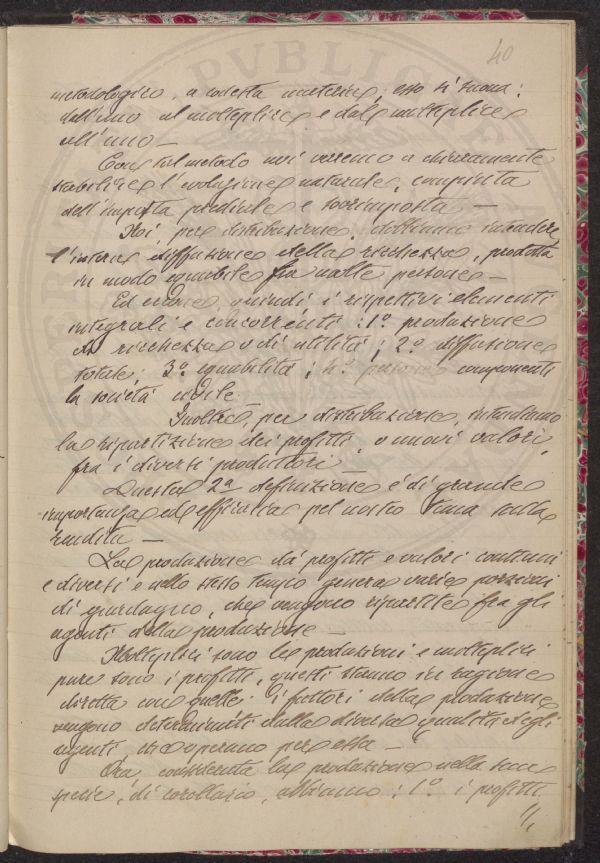 40
metodologico, a codesta materia, esso si suona:
dall'uno al molteplice e dal molteplice
all'uno —
Con tal metodo noi verremo a chiaramente
stabilire l'evoluzione naturale, compiuta
dell'imposta prediale e sovrimposta —
Noi, per distribuzione, dobbiamo intendere
l'intera diffusione della ricchezza, prodotta
in modo equabile fra molte persone —
Ed eccone quindi i rispettivi elementi
integrali e concorrenti: 1º produzione
di ricchezza o di utilità; 2º diffusione
totale; 3º equabilità; 4º persone componenti
la società civile.
Inoltre, per distribuzione, intendiamo
la ripartizione dei profitti o nuovi valori,
fra i diversi produttori —
Questa 2ª definizione è di grande
importanza ed efficacia pel nostro tema sulla
rendita —
La produzione dà profitti e valori continui
e diversi e nello stesso tempo genera varie porzioni
di guadagno, che vengono ripartite fra gli
agenti della produzione —
Molteplici sono le produzioni e molteplici
pure sono i profitti, questi stanno in ragione
diretta con quelle; i fattori della produzione
vengono determinati dalla diversa qualità degli
agenti, che operano per essa —
Ora, considerata la produzione nella sua
specie, di corollario, abbiamo: 1º i profitti